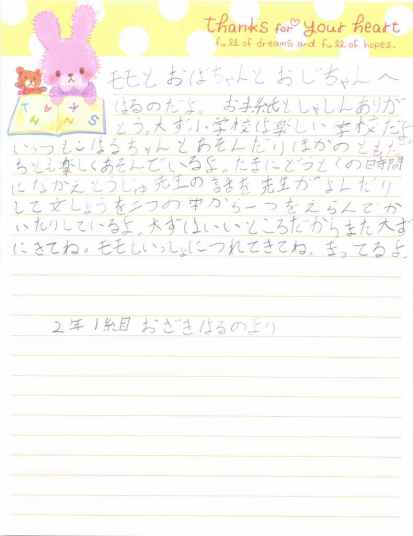 thanks for your heart
full of dreams and full of hopes.
モモとおばちゃんとおじちゃんへ
はるのだよ。お手紙としゃしんありが
とう。大ず小学校は楽しい学校だよ
いっつもこはるちゃんとあそんだりほかのともだ
ちとも楽しくあそんでいるよ。たまにどうとくの時間
になかえとうしゅ先生の話を先生がよんだり
して文しょうを二つの中から一つをえらんでか
いたりしているよ。大ずはいいところだからまた大ず
にきてね。モモもいっしょにつれてきてね。まってるよ。
2年1組目 おざきはるのより